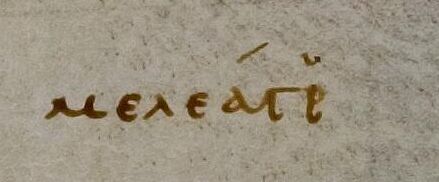 μελεάγρ̆